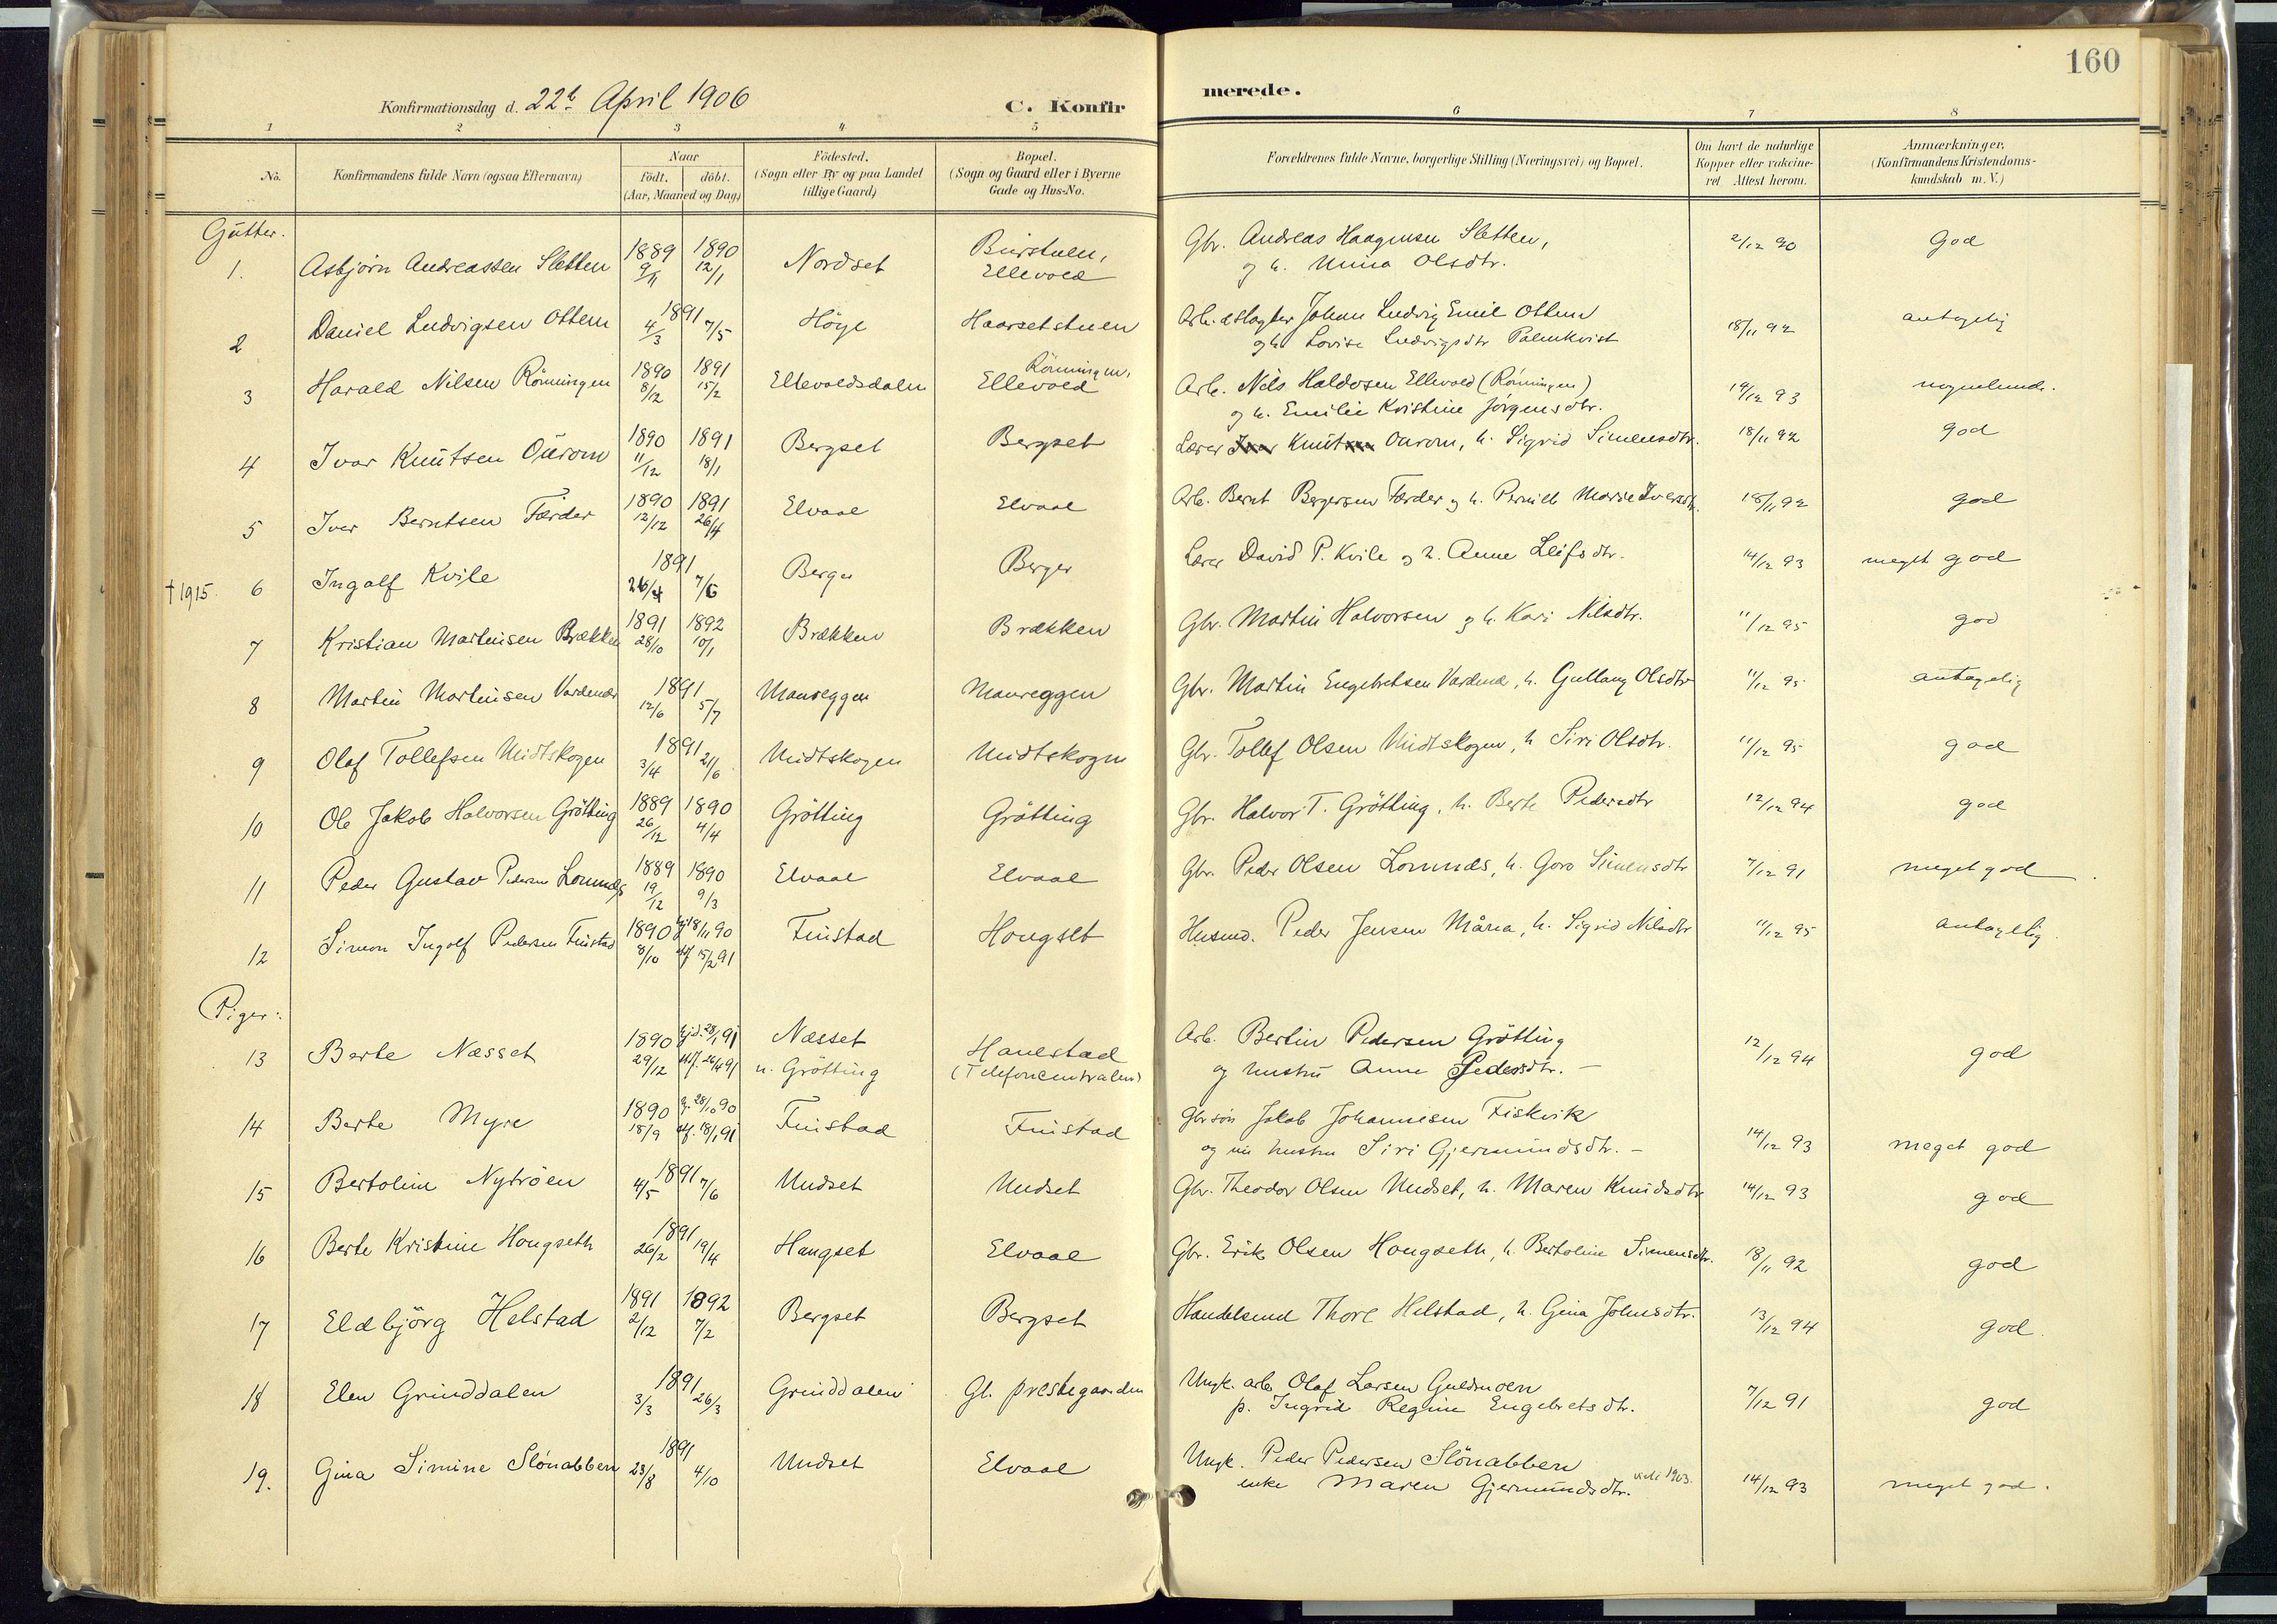 160
Konfirmationsdag d. 22de April 1906 C. Konfirmerede.
1 2 3 4 5 6 7 8
No. Konfirmandens fulde Navn (ogsaa Efternavn) Naar födt. döbt. (Aar, Maaned og Dag) Födested. (Sogn eller By og paa Landet tillige Gaard) Bopæl. (Sogn og Gaard eller i Byerne Gade og Hus-No. Forældrenes fulde Navne, borgerlige Stilling (Næringsvei) og Bopæl. Om havt de naturlige Kopper eller vakcineret. Attest herom. Anmærkninger, (Konfirmandens Kristendomskundskab m. V.)
Gutter.
1. Asbjörn Andreassen Sletten 1889 9/11 1890 12/1 Nordset Burstuen, Ellevold Gbr. Andreas Haagensen Sletten, 2/12 90 God
og h. Unina Olsdtr.
2 Daniel Ludvigsen Ottem 1891 4/3 7/5 Höye Haarsetstuen Arb. Johan Ludvig Emil Ottem 18/11 92 antagelig
og h. Lovise Ludvigsdtr Palmkvist
3 Harald Nilsen Rönningen 1890 8/12 1891 15/2 Ellevoldsdalen Rönningen, Ellevold Arb. Nils Haldosen Ellevold (Rönningen) 14/12 93
og h. Emilie Kristine Jörgensdtr.
4 Ivar Knutsen Ourom 1890 11/12 1891 18/1 Bergset Bergset Lærer Knut Ourom, h. Sigrid Simensdtr. 18/11 92 god
5 Iver Berntsen Færder 1890 12/12 1891 26/4 Elvaal Elvaal Arb. Bernt Bergersen Færder og h. Pernille Marie Iversdtr. 18/11 92 god
† 1915. 6 Ingolf Kvile 1891 26/4 7/6 Berger Berger Lærer David P. Kvile og h. Anne Leifsdtr. 14/12 93 meget god
7 Kristian Martinsen Brækken 1891 28/10 1892 10/1 Brækken Brækken Gbr. Martin Halvorsen og h. Kari Nilsdtr. 11/12 95 god
8 Martin Martinsen Vardenær 1891 12/6 5/7 Moreggen Moreggen Gbr. Martin Engebretsen Vardenæ, h. Gullaug Olsdtr 11/12 95 antagelig
9 Olaf Tollefsen Midtskogen 1891 3/4 21/6 Midtskogen Midtskogen Gbr. Tollef Olsen Midtskogen, h. Siri Olsdtr. 11/12 95 god
10 Ole Jakob Halvorsen Grötting 1889 26/12 1890 4/4 Grötting Grötting Gbr. Halvor T. Grötting, h. Berte Pedersdtr 12/12 94 god
11 Peder Gustav Pedersen Lomnæs 1889 19/12 1890 9/3 Elvaal Elvaal Gbr. Peder Olsen Lomnæs, h. Goro Simensdtr 7/12 91 meget god
12 Simon Ingolf Pedersen Finstad 1890 8/10 hj. 18/11 90 stf 15/2 91 Finstad Hougset Husmd. Peder Jensen Måna, h. Sigrid Nilsdtr 11/12 95 antagelig
Piger:
13 Berte Næsset 1890 29/12 hjd. 28/1 91 stf. 26/4 91 Næsset Hanestad Arb. Bertin Pedersen Grötting 12/12 94 god
n. Grötting (Telefoncentralen) og hustru Anne Pedersdtr. —
14 Berte Myre 1890 18/9 hj. 28/10 90 stf. 18/1 91 Finstad Finstad Gbrsön Jakob Johannesen Fiskvik 14/12 93 meget god
og nu hustru Siri Gjermundsdtr. —
15 Bertoline Nytröen 1891 4/5 7/6 Undset Undset Gbr. Theodor Olsen Undset, h. Maren Knudsdtr 14/12 93 god
16 Berte Kristine Hougseth 1891 26/2 19/4 Haugset Elvaal Gbr. Erik Olsen Hougseth, h. Bertoline Simensdtr. 18/11 92 god
17 Eldbjörg Helstad 1891 2/12 1892 7/2 Bergset Bergset Handelsmd Thore Helstad, h. Gina Johnsdtr. 13/12 94 god.
18 Elen Grinddalen 1891 3/3 26/3 Grinddalen Gl. prestegaarden Ungk. arb. Olaf Larsen Guldmoen 7/12 91 god
p. Ingrid Regine Engebretsdtr.
19. Gina Simine Slönabben 1891 23/8 4/10 Undset Elvaal Ungk. Peder Pedersen Slönabben
enke Maren Gjermundsdtr. viet 1903. 14/12 93 meget god.